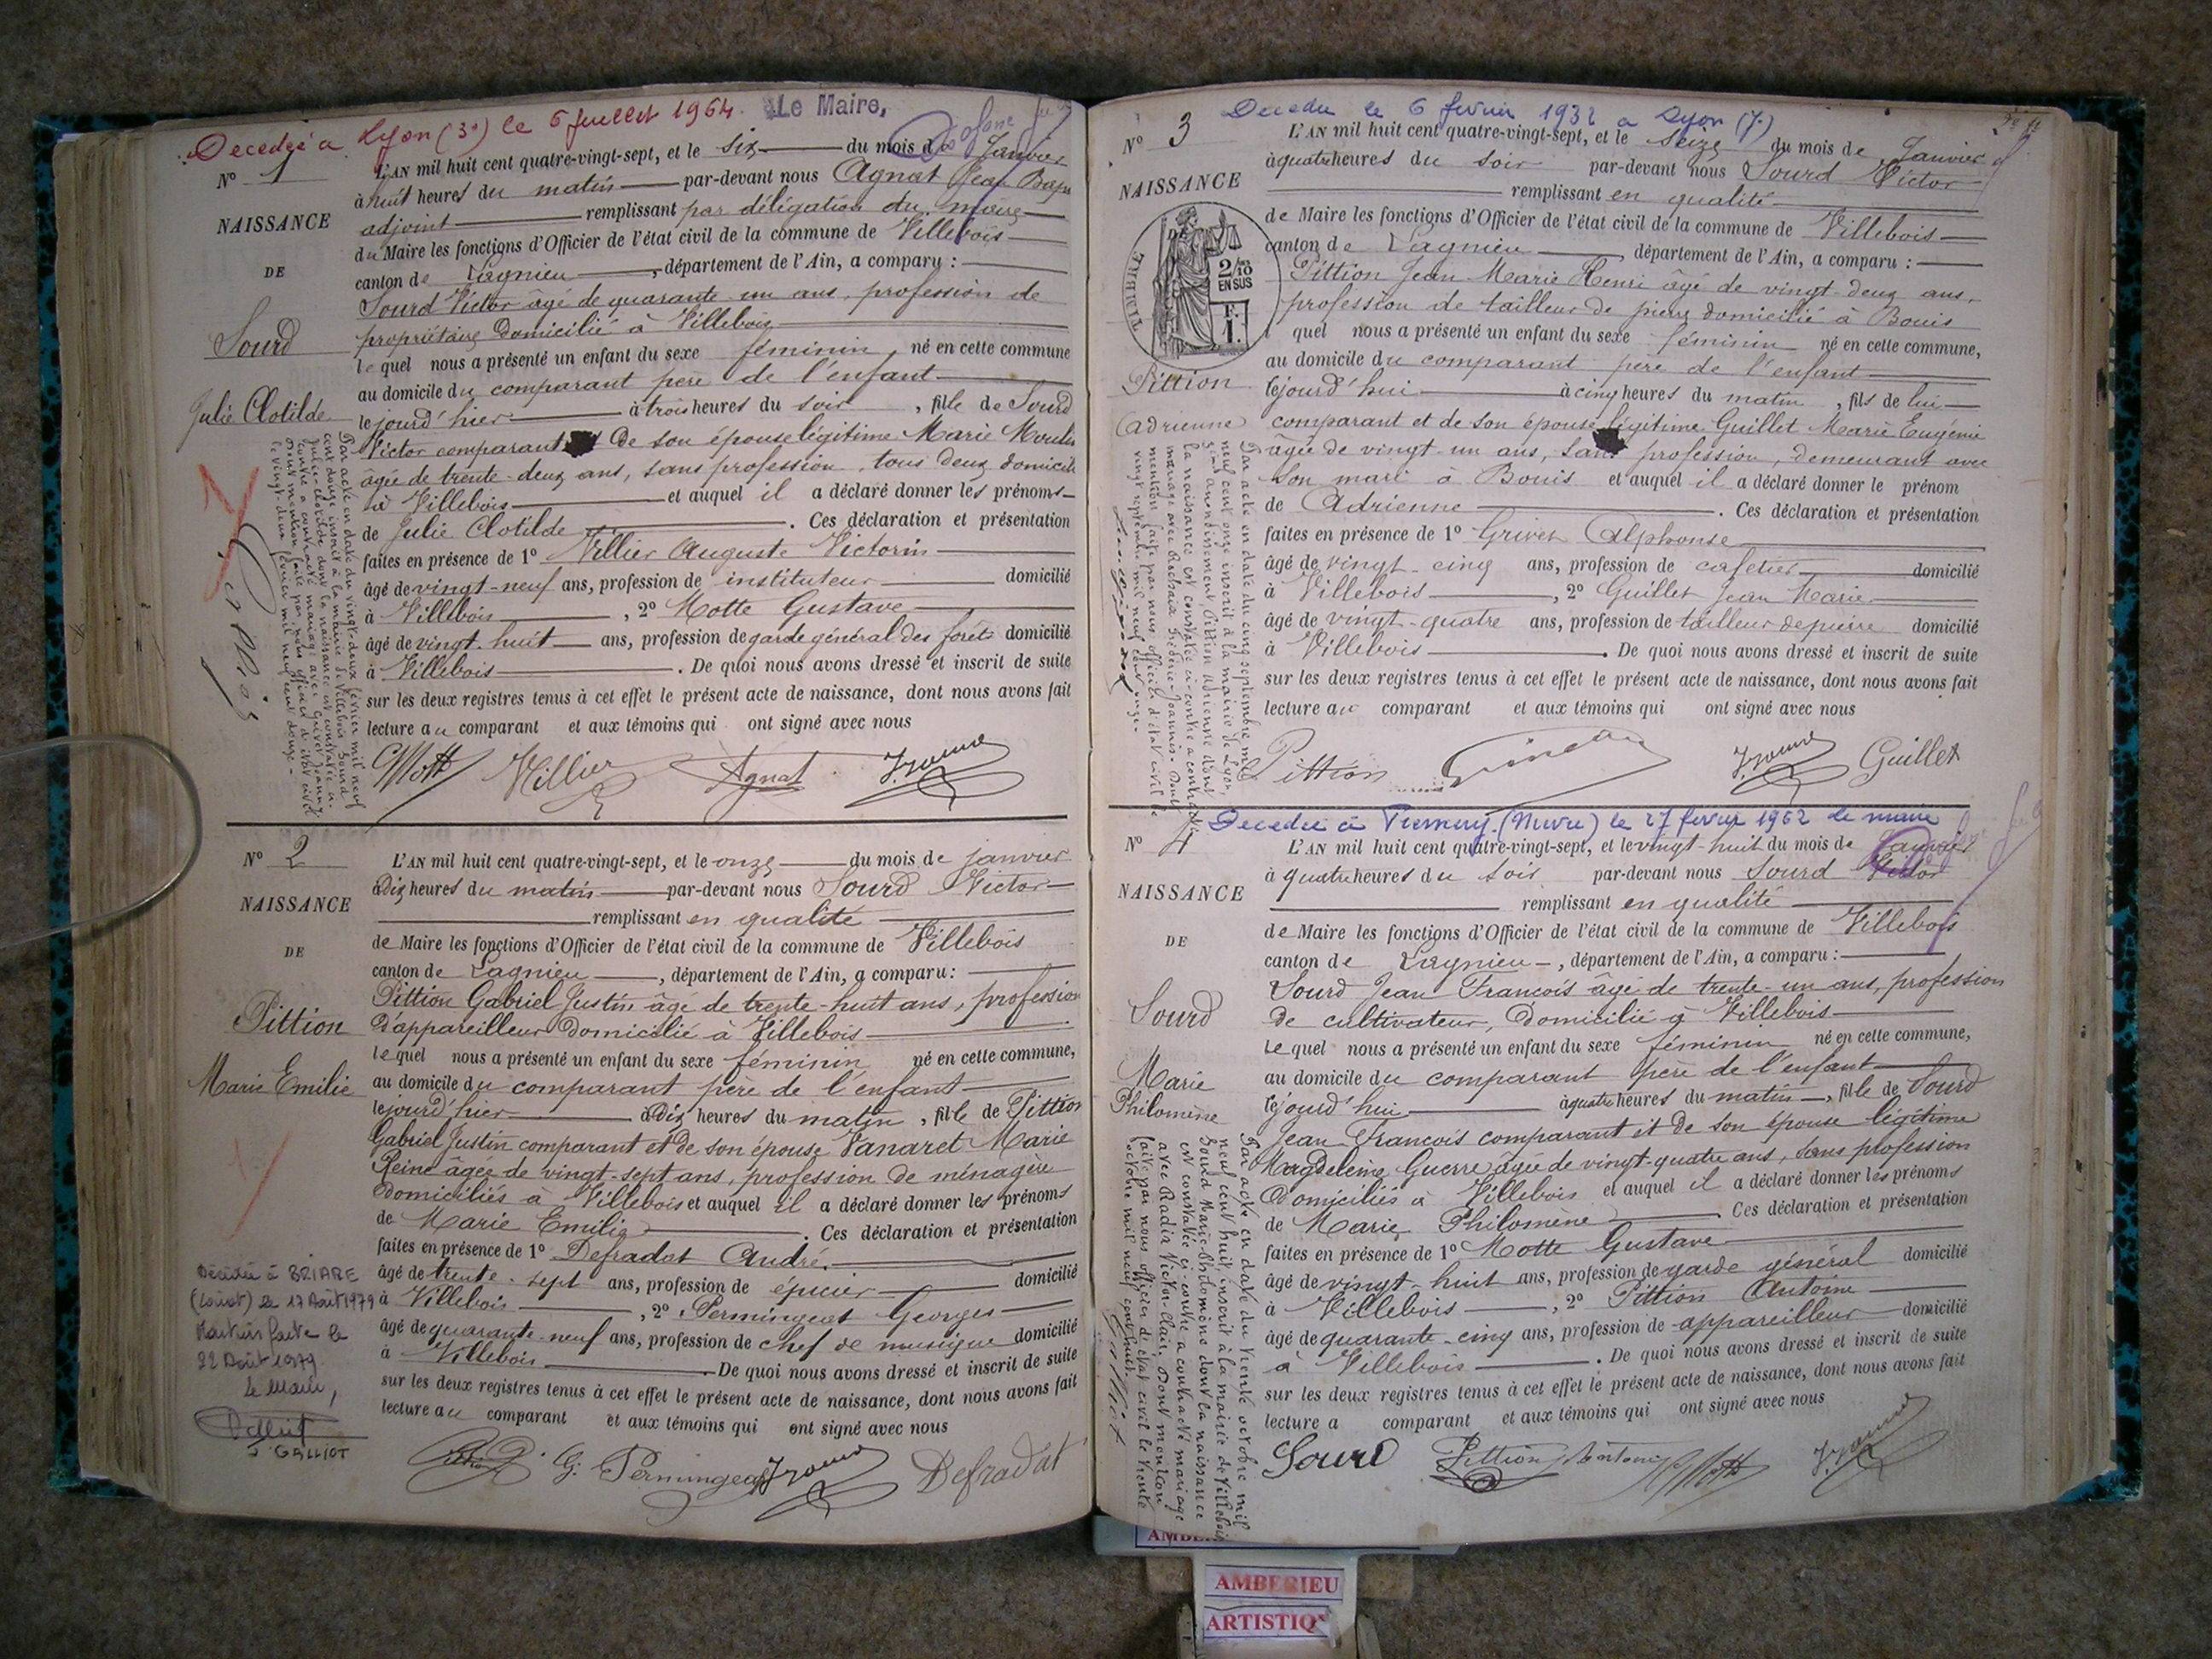 Decedée a Lyon (3e) le 6 juillet 1964. Le Maire,
No 1
L'AN mil huit cent quatre-vingt-sept, et le six du mois de Janvier
à huit heures du matin par-devant nous Agnat Jean Bap
NAISSANCE
adjoint remplissant par délégation du maire
du Maire les fonctions d'Officier de l'état civil de la commune de Villebois
DE
canton de Lagnieu, département de l'Ain, a comparu :
Sourd Victor âgé de quarante un ans, profession de
Sourd
propriétaire domicilié à Villebois
le quel nous a présenté un enfant du sexe féminin, né en cette commune
au domicile du comparant père de l'enfant
Julie Clotilde
le jourd'hier à trois heures du soir, fille de Sourd
Victor comparant De son épouse légitime Marie Moulin
âgée de trente-deux ans, sans profession, tous deux domicili
à Villebois et auquel il a déclaré donner les prénoms
de Julie Clotilde. Ces déclaration et présentation
faites en présence de 1o Villier Auguste Victorin
âgé de vingt-neuf ans, profession de instituteur domicilié
à Villebois, 2o Motte Gustave
âgé de vingt-huit ans, profession de garde général des forêts domicilié
à Villebois. De quoi nous avons dressé et inscrit de suite
sur les deux registres tenus à cet effet le présent acte de naissance, dont nous avons fait
lecture au comparant et aux témoins qui ont signé avec nous
Par acte en date du vingt-deux février mil neuf
cent douze inscrit à la mairie de Villebois Sourd
Julie-Clotilde dont la naissance est constatée ci-
contre a contracté mariage avec Grivet Joanny
Dont mention faite par nous officier d'état civil
le vingt-deux février mil neuf cent douze.
GMott Villier Agnat
No 2
L'AN mil huit cent quatre-vingt-sept, et le onze du mois de janvier
à Dix heures du matin par-devant nous Sourd Victor
NAISSANCE
remplissant en qualité
de Maire les fonctions d'Officier de l'état civil de la commune de Villebois
DE
canton de Lagnieu, département de l'Ain, a comparu :
Pittion Gabriel Justin âgé de trente-huit ans, profession
Pittion
D'appareilleur Domicilié à Villebois
le quel nous a présenté un enfant du sexe féminin né en cette commune,
Marie Emilie
au domicile du comparant père de l'enfant
le jourd'hier à Dix heures du matin, fille de Pittion
Gabriel Justin comparant et de son épouse Vanaret Marie
Reine âgée de vingt-sept ans, profession de ménagère
Domiciliés à Villebois et auquel il a déclaré donner les prénoms
de Marie Emilie. Ces déclaration et présentation
faites en présence de 1o Defradat André.
âgé de trente-sept ans, profession de épicier domicilié
à Villebois, 2o Permingeat Georges
âgé de quarante-neuf ans, profession de chef de musique domicilié
à Villebois. De quoi nous avons dressé et inscrit de suite
sur les deux registres tenus à cet effet le présent acte de naissance, dont nous avons fait
lecture au comparant et aux témoins qui ont signé avec nous
Décédée à BRIARE
(Loiret) le 17 Août 1979
Mention faite le
22 Août 1979
Le Maire,
J. GALLIOT
G. Permingeat Defradat
Decedée le 6 fevrier 1932 a Lyon (7e)
No 3
L'AN mil huit cent quatre-vingt-sept, et le seize du mois de Janvier
à quatre heures du soir par-devant nous Sourd Victor
NAISSANCE
remplissant en qualité
de Maire les fonctions d'Officier de l'état civil de la commune de Villebois
TIMBRE
2/10
EN SUS
canton de Lagnieu, département de l'Ain, a comparu :
Pittion Jean Marie Henri âgé de vingt-deux ans,
profession de tailleur de pierre domicilié à Bouis
quel nous a présenté un enfant du sexe féminin né en cette commune,
au domicile du comparant père de l'enfant
Pittion
le jourd'hui à cinq heures du matin, fils de lui
Adrienne
comparant et de son épouse légitime Guillet Marie Eugénie
âgée de vingt-un ans, sans profession, demeurant avec
son mari à Bouis et auquel il a déclaré donner le prénom
de Adrienne. Ces déclaration et présentation
faites en présence de 1o Grivet Alphonse
âgé de vingt-cinq ans, profession de cafetier domicilié
à Villebois, 2o Guillet Jean Marie
âgé de vingt-quatre ans, profession de tailleur de pierre domicilié
à Villebois. De quoi nous avons dressé et inscrit de suite
sur les deux registres tenus à cet effet le présent acte de naissance, dont nous avons fait
lecture au comparant et aux témoins qui ont signé avec nous
Par acte en date du cinq septembre mil
neuf cent onze inscrit à la mairie de Lyon,
arrondissement, Pittion Adrienne dont
la naissance est constatée ci-contre a contracté
mariage avec Joannès. Dont
mention faite par nous officier d'état civil le
vingt septembre mil neuf cent onze.
Pittion Guillet
Decedée à Premery (Nievre) le 27 fevrier 1962 le maire
No 4
L'AN mil huit cent quatre-vingt-sept, et le vingt-huit du mois de Janvier
à quatre heures du soir par-devant nous Sourd Victor
NAISSANCE
remplissant en qualité
de Maire les fonctions d'Officier de l'état civil de la commune de Villebois
DE
canton de Lagnieu, département de l'Ain, a comparu :
Sourd Jean François âgé de trente-un ans, profession
Sourd
de cultivateur, Domicilié à Villebois
le quel nous a présenté un enfant du sexe féminin né en cette commune,
Marie
au domicile du comparant père de l'enfant
Philomène
le jourd'hui à quatre heures du matin, fille de Sourd
Jean François comparant et de son épouse légitime
Magdeleine Guerre âgée de vingt-quatre ans, sans profession
Domiciliés à Villebois et auquel il a déclaré donner les prénoms
de Marie Philomène. Ces déclaration et présentation
faites en présence de 1o Motte Gustave
âgé de vingt-huit ans, profession de garde général domicilié
à Villebois, 2o Pittion Antoine
âgé de quarante-cinq ans, profession de appareilleur domicilié
à Villebois. De quoi nous avons dressé et inscrit de suite
sur les deux registres tenus à cet effet le présent acte de naissance, dont nous avons fait
lecture a comparant et aux témoins qui ont signé avec nous
Par acte en date du trente octobre mil
neuf cent huit, inscrit à la mairie de Villebois
Sourd Marie-Philomène dont la naissance
est constatée ci-contre a contracté mariage
avec Radix Victor-Clair, Dont mention
faite par nous officier d'état civil le trente
octobre mil neuf cent huit.
Sourd Pittion Antoine GMott
AMBERIEU
ARTISTIQ